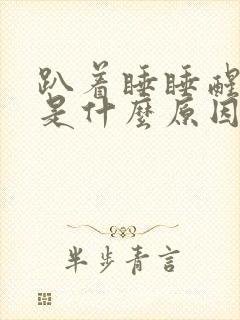 趴着睡睡醒
是什麼原因
半步青言